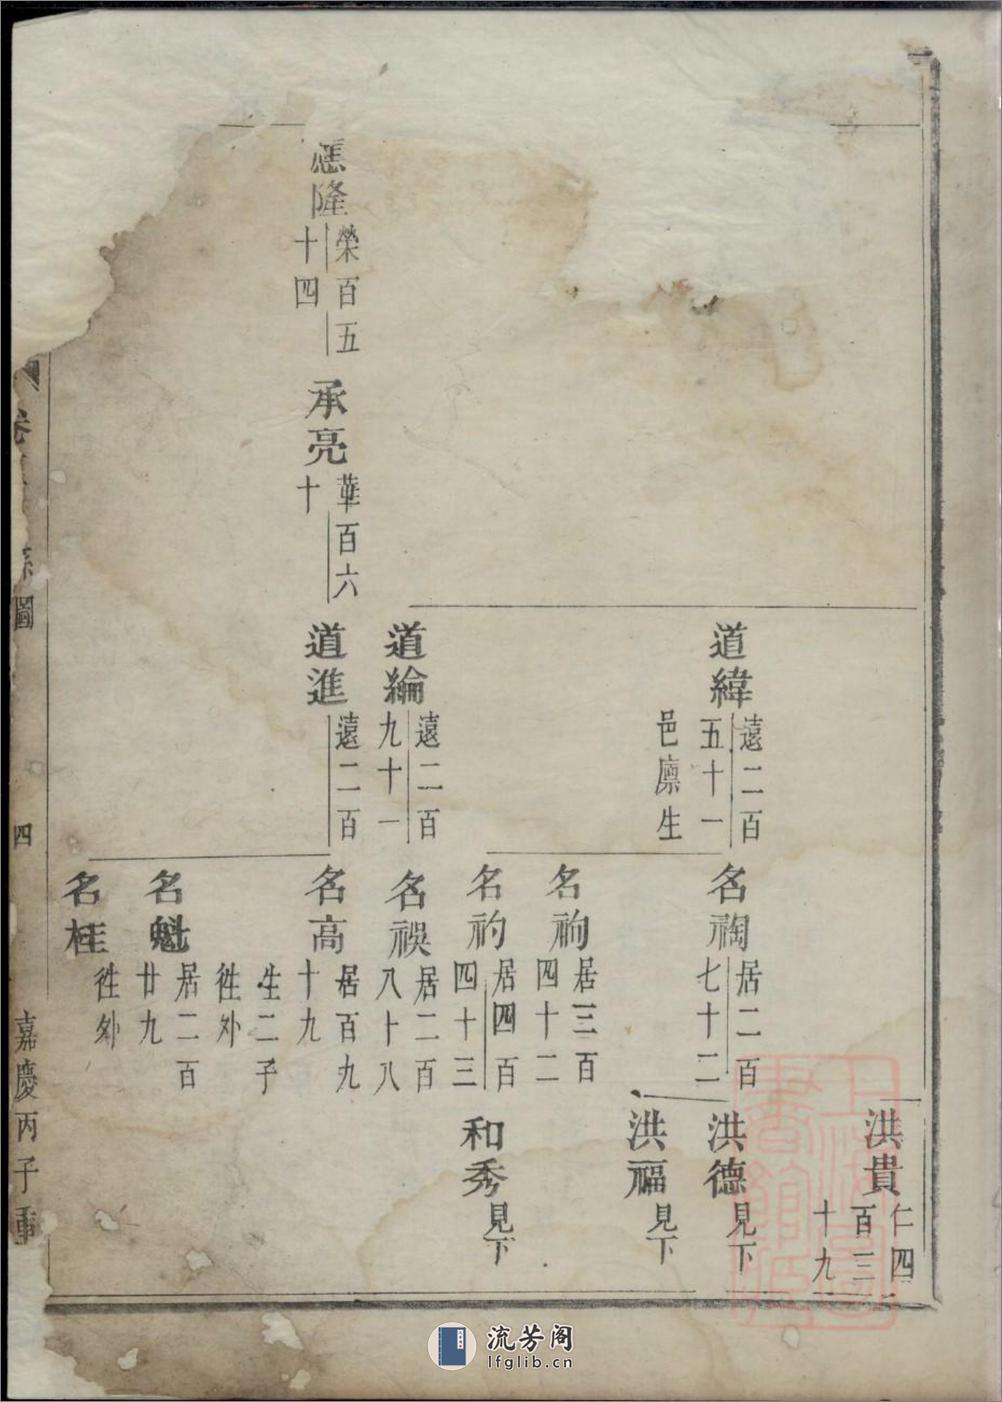 隆
榮百五
十四
承亮
華百六
十
道緯
遠二百
五十一
邑廪生
道綸
遠二百
九十一
道進
遠二百
名祹
居二百
七十二
名袧
居三百
四十二
名礿
居四百
四十三
名祦
居二百
八十八
名高
居百九
十九
生二子
徃外
名魁
居二百
廿九
名桂
徃外
洪貴
仁四
百三
十九
洪德
見下
洪福
見下
和秀
見下
卷
系圖
四
嘉慶丙子重
上海圖書館藏
流芳阁
lfglib.cn